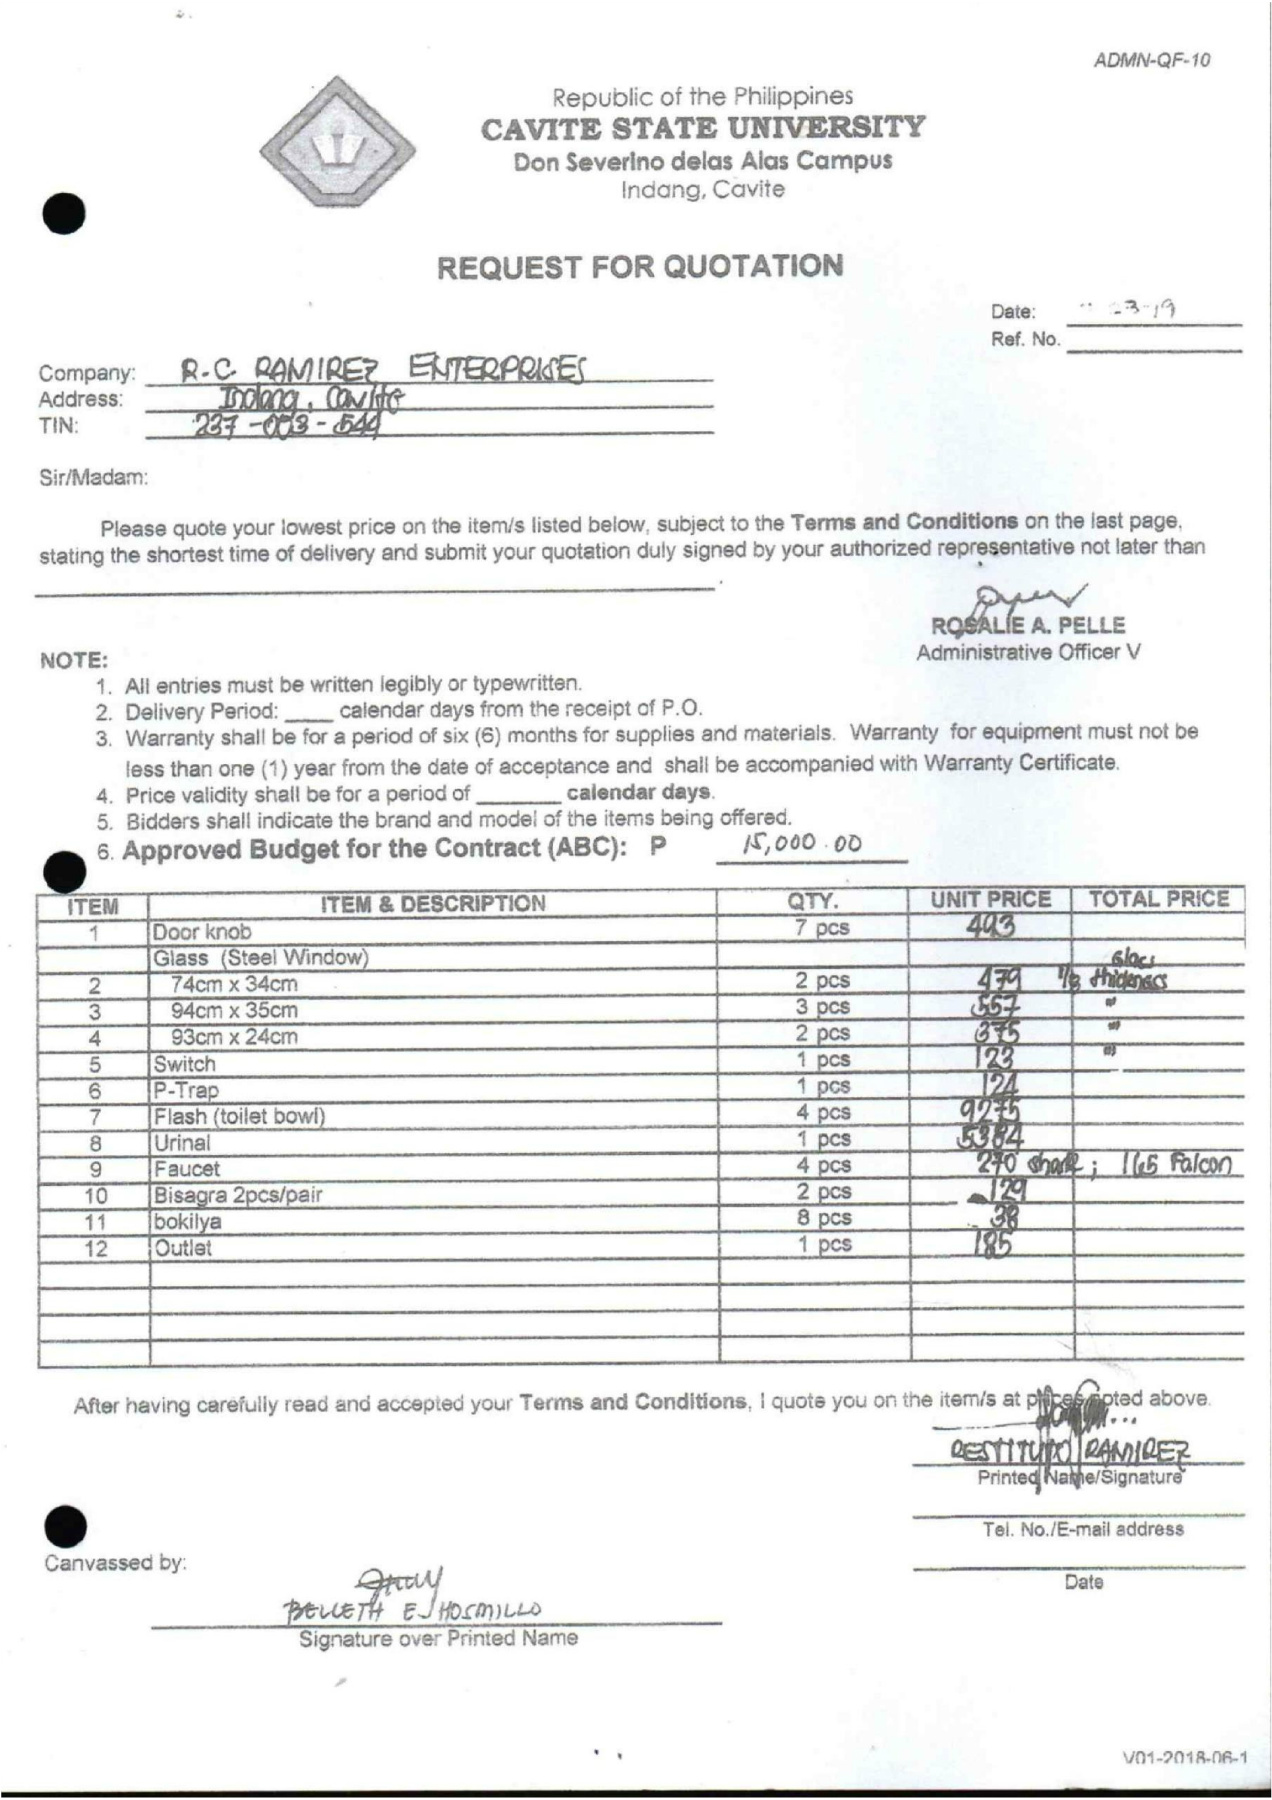 ADMN-QF-10
Republic of the Philippines
CAVITE STATE UNIVERSITY
Don Severino delas Alas Campus
Indang, Cavite
REQUEST FOR QUOTATION
Date: 23-19
Ref. No.
Company: R.C. RAMIREZ ENTERPRISES
Address: Indang, Cavite
TIN: 237-003-544
Sir/Madam:
Please quote your lowest price on the item/s listed below, subject to the Terms and Conditions on the last page,
stating the shortest time of delivery and submit your quotation duly signed by your authorized representative not later than
ROSALIE A. PELLE
Administrative Officer V
NOTE:
1. All entries must be written legibly or typewritten.
2. Delivery Period: ____ calendar days from the receipt of P.O.
3. Warranty shall be for a period of six (6) months for supplies and materials. Warranty for equipment must not be
less than one (1) year from the date of acceptance and shall be accompanied with Warranty Certificate.
4. Price validity shall be for a period of _______ calendar days.
5. Bidders shall indicate the brand and model of the items being offered.
6. Approved Budget for the Contract (ABC): P 15,000.00
ITEM ITEM & DESCRIPTION QTY. UNIT PRICE TOTAL PRICE
1 Door knob 7 pcs 493
Glass (Steel Window) Glass
2 74cm x 34cm 2 pcs 479 1/8 thickness
3 94cm x 35cm 3 pcs 557 "
4 93cm x 24cm 2 pcs 375 "
5 Switch 1 pcs 123 "
6 P-Trap 1 pcs 124
7 Flash (toilet bowl) 4 pcs 9275
8 Urinal 1 pcs 5384
9 Faucet 4 pcs 270 ; 165 Falcon
10 Bisagra 2pcs/pair 2 pcs 129
11 bokilya 8 pcs 38
12 Outlet 1 pcs 185
After having carefully read and accepted your Terms and Conditions, I quote you on the item/s at prices noted above.
RESTITUTO RAMIREZ
Printed Name/Signature
Tel. No./E-mail address
Date
Canvassed by:
BELLETH E. HOSMILLO
Signature over Printed Name
V01-2018-06-1